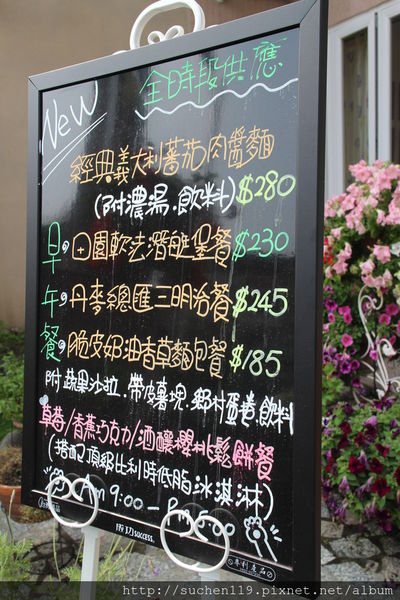 NeW
全時段供應
經典義大利蕃茄肉醬麵
(附濃湯.飲料) $280
早 田園軟法潛艇堡餐 $230
午 丹麥總匯三明治餐 $245
餐 脆皮奶油香草麵包餐 $185
附 蔬果沙拉.帶皮薯塊.鄉村蛋卷.飲料
草莓/香蕉巧克力/酒釀櫻桃鬆餅餐
(搭配頂級比利時低脂冰淇淋)
Am 9:00 - Pm 5:00
SUCCESS.
專利產品
http://suchen119.pixnet.net/album